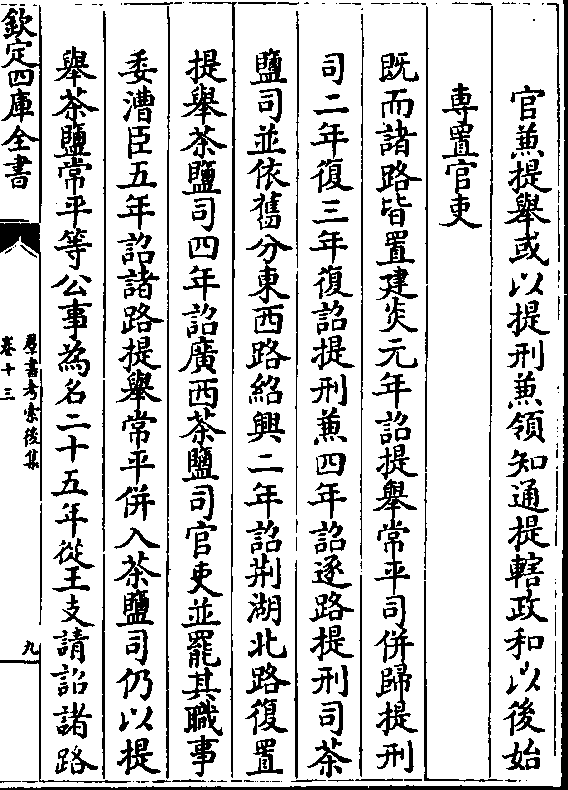 官兼提舉或以提刑兼領知通提轄政和以後始
専置官吏
既而諸路皆置建炎元年詔提舉常平司併歸提刑
司二年復三年復詔提刑兼四年詔逐路提刑司茶
鹽司並依舊分東西路紹興二年詔荆湖北路復置
提舉茶鹽司四年詔廣西茶鹽司官吏並罷其職事
委漕臣五年詔諸路提舉常平併入茶鹽司仍以提
舉茶鹽常平等公事為名二十五年從王支請詔諸路
欽定四庫全書
羣書考索後集
卷十三
九